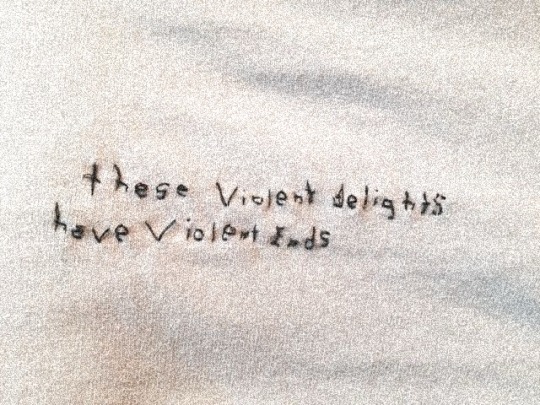 these Violent delights
have Violent Ends